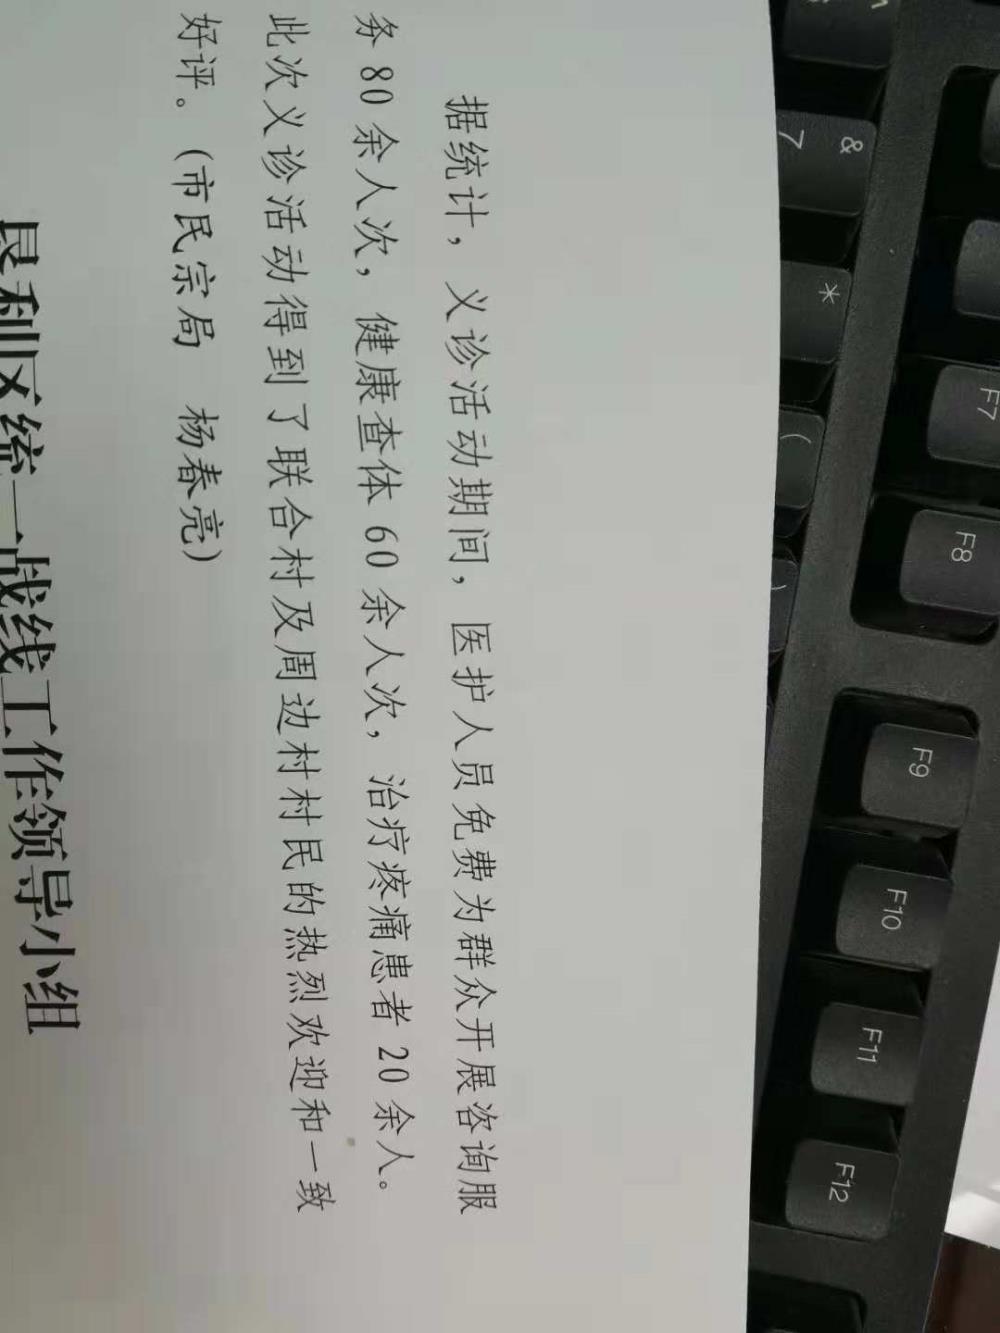 据统计，义诊活动期间，医护人员免费为群众开展咨询服
务 80 余人次，健康查体 60 余人次，治疗疼痛患者 20 余人。
此次义诊活动得到了联合村及周边村村民的热烈欢迎和一致
好评。（市民宗局　杨春亮）
垦利区统一战线工作领导小组
&
7
*
(
)
F7
F8
F9
F10
F11
F12